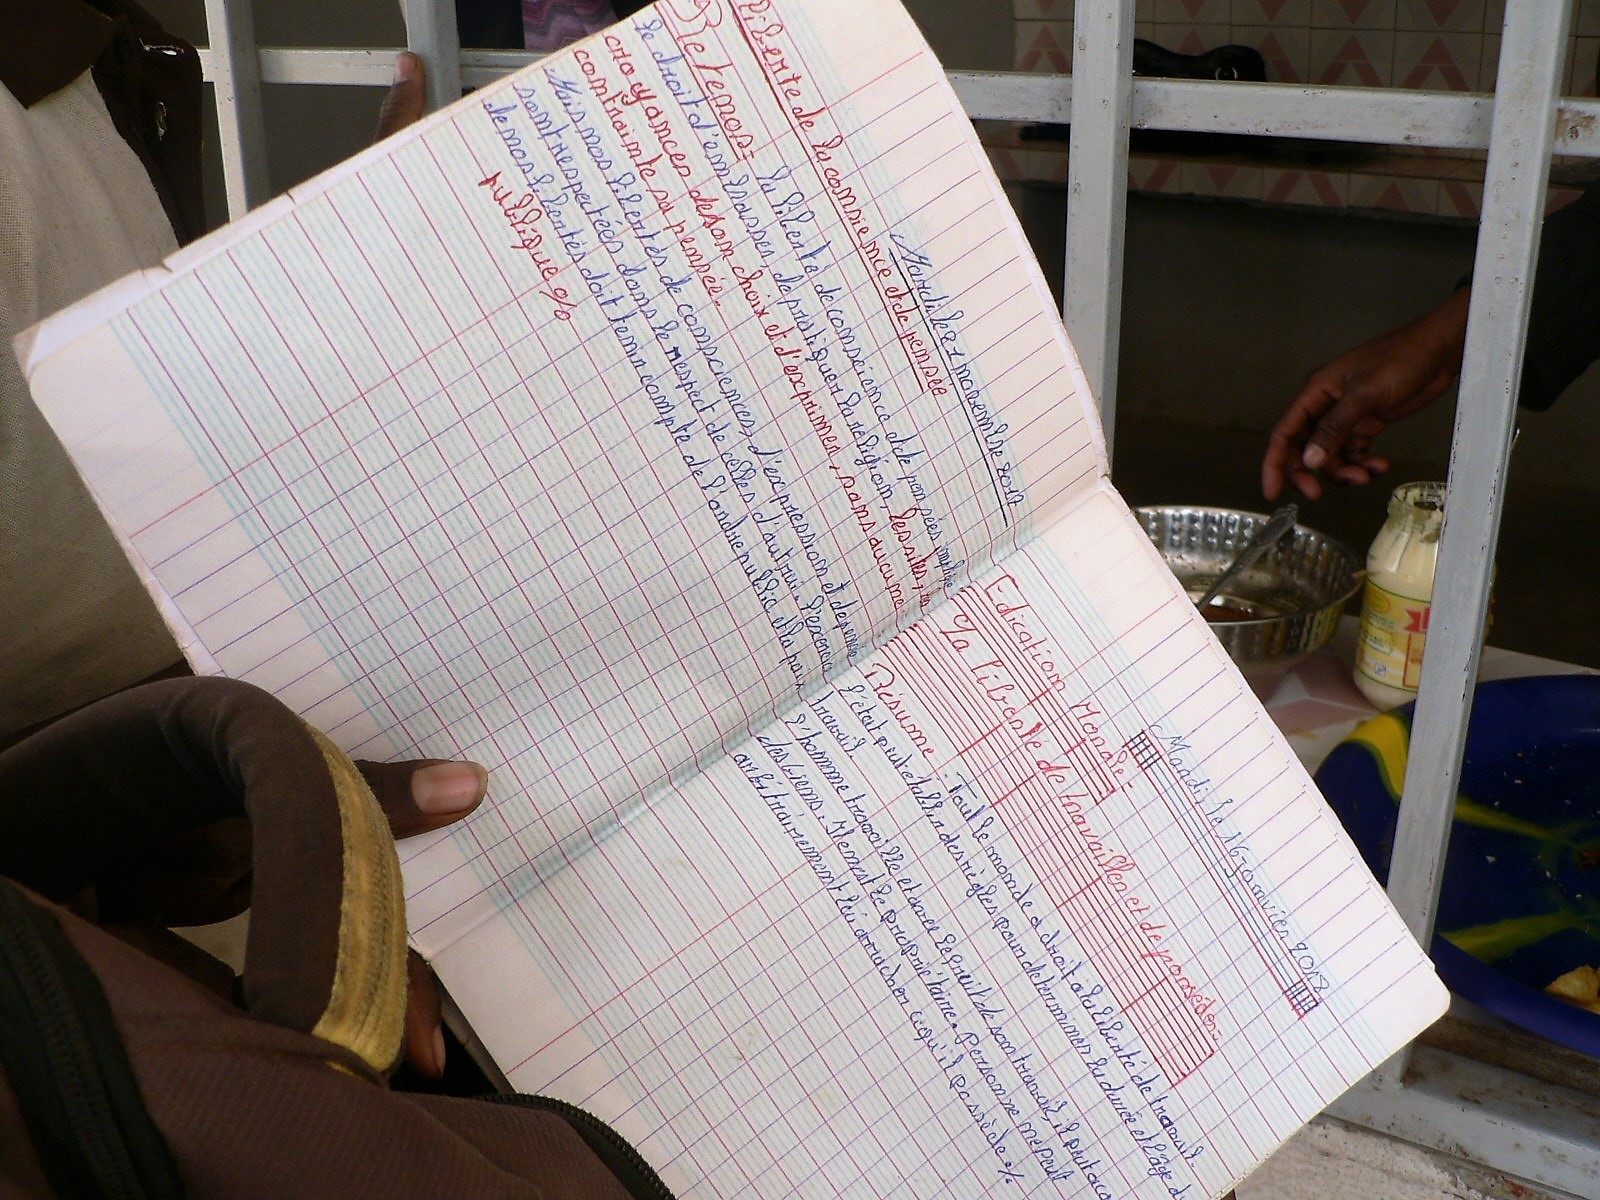 Mardi le 7 novembre 2017
liberte de la consience et de pensée
Retenons: la liberté de conscience et de pensées implique
le droit d'embrasser, de pratiquer la religion, les rites, les
croyances de son choix et d'exprimer, sans aucune
contrainte sa pensée.
Mais nos libertés de consciences, d'expression et de pensée
sont respectées dans le respect de celles d'autrui. l'exercice
de nos libertés doit tenir compte de l'ordre public et la paix
publique %
Mardi le 16 Janvier 2018
Education Morale
%a liberte de travailler et de posséder
Résume Tout le monde a droit à la liberté de travail.
l'état peut établir des règles pour determiner la durée et l'âge du
travail
l'homme travaille et avec le fruit de son travail, il peut
des biens. Il en est le propriétaire. Personne ne peut
arbitrairement lui arracher ce qu'il possède %